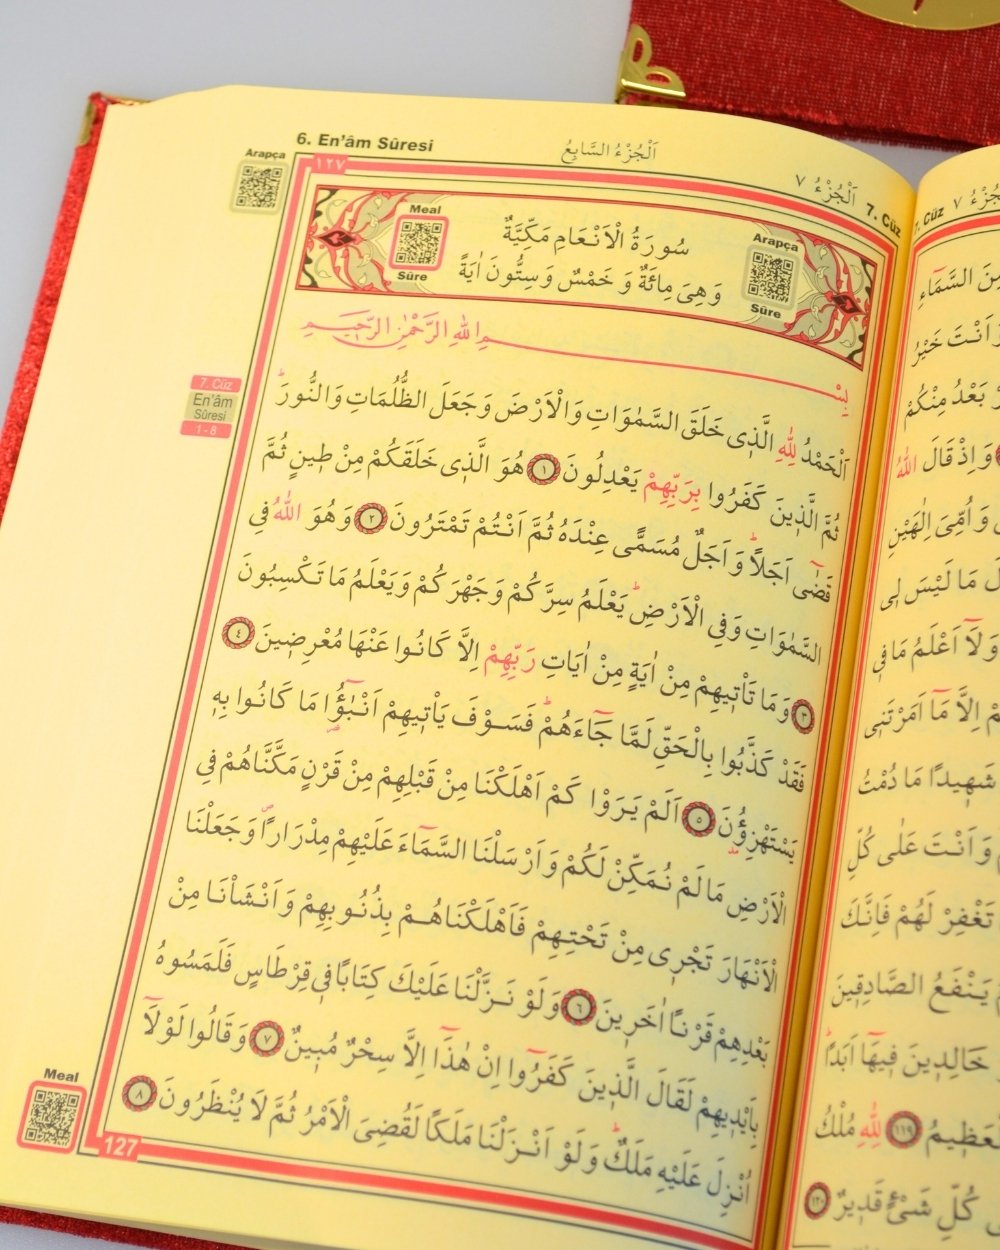 6. En'âm Sûresi
اَلْجُزْءُ السَّابِعُ
اَلْجُزْءُ ٧
7. Cüz
Arapça
١٢٧
Meal
Sûre
سُورَةُ الْاَنْعَامِ مَكِّيَّةٌ
وَهِىَ مِائَةٌ وَ خَمْسٌ وَسِتُّونَ اٰيَةً
Arapça
Sûre
بِسْمِ اللّٰهِ الرَّحْمٰنِ الرَّحِيمِ
7. Cüz
En'âm
Sûresi
1-8
اَلْحَمْدُ لِلّٰهِ الَّذ۪ى خَلَقَ السَّمٰوَاتِ وَالْاَرْضَ وَجَعَلَ الظُّلُمَاتِ وَالنُّورَۜ
ثُمَّ الَّذ۪ينَ كَفَرُوا بِرَبِّهِمْ يَعْدِلُونَ ﴿١﴾ هُوَ الَّذ۪ى خَلَقَكُمْ مِنْ ط۪ينٍ ثُمَّ
قَضٰٓى اَجَلًاۜ وَاَجَلٌ مُسَمًّى عِنْدَهُ ثُمَّ اَنْتُمْ تَمْتَرُونَ ﴿٢﴾ وَهُوَ اللّٰهُ فِى
السَّمٰوَاتِ وَفِى الْاَرْضِۜ يَعْلَمُ سِرَّكُمْ وَجَهْرَكُمْ وَيَعْلَمُ مَا تَكْسِبُونَ
﴿٣﴾ وَمَا تَأْت۪يهِمْ مِنْ اٰيَةٍ مِنْ اٰيَاتِ رَبِّهِمْ اِلَّا كَانُوا عَنْهَا مُعْرِض۪ينَ ﴿٤﴾
فَقَدْ كَذَّبُوا بِالْحَقِّ لَمَّا جَٓاءَهُمْۜ فَسَوْفَ يَأْت۪يهِمْ اَنْبٰٓؤُ۬ا مَا كَانُوا بِه۪
يَسْتَهْزِؤُ۫نَ ﴿٥﴾ اَلَمْ يَرَوْا كَمْ اَهْلَكْنَا مِنْ قَبْلِهِمْ مِنْ قَرْنٍ مَكَّنَّاهُمْ فِى
الْاَرْضِ مَا لَمْ نُمَكِّنْ لَكُمْ وَاَرْسَلْنَا السَّمَٓاءَ عَلَيْهِمْ مِدْرَارًاۖ وَجَعَلْنَا
الْاَنْهَارَ تَجْر۪ى مِنْ تَحْتِهِمْ فَاَهْلَكْنَاهُمْ بِذُنُوبِهِمْ وَاَنْشَأْنَا مِنْ
بَعْدِهِمْ قَرْنًا اٰخَر۪ينَ ﴿٦﴾ وَلَوْ نَزَّلْنَا عَلَيْكَ كِتَابًا ف۪ى قِرْطَاسٍ فَلَمَسُوهُ
بِاَيْد۪يهِمْ لَقَالَ الَّذ۪ينَ كَفَرُٓوا اِنْ هٰذَٓا اِلَّا سِحْرٌ مُب۪ينٌ ﴿٧﴾ وَقَالُوا لَوْلَٓا
اُنْزِلَ عَلَيْهِ مَلَكٌۜ وَلَوْ اَنْزَلْنَا مَلَكًا لَقُضِىَ الْاَمْرُ ثُمَّ لَا يُنْظَرُونَ ﴿٨﴾
Meal
127
7. Cüz
٧
مِنَ السَّمَٓاءِ
اَنْتَ خَيْرُ
بَعْدُ مِنْكُمْ
وَاِذْ قَالَ اللّٰهُ
وَاُمِّىَ اِلٰهَيْنِ
مَا لَيْسَ ل۪ى
وَلَٓا اَعْلَمُ مَا ف۪ى
اِلَّا مَٓا اَمَرْتَن۪ى
شَه۪يدًا مَا دُمْتُ
وَاَنْتَ عَلٰى كُلِّ
تَغْفِرْ لَهُمْ فَاِنَّكَ
يَنْفَعُ الصَّادِق۪ينَ
خَالِد۪ينَ ف۪يهَٓا اَبَدًاۜ
الْعَظ۪يمُ ﴿١١٩﴾ لِلّٰهِ مُلْكُ
كُلِّ شَىْءٍ قَد۪يرٌ ﴿١٢٠﴾